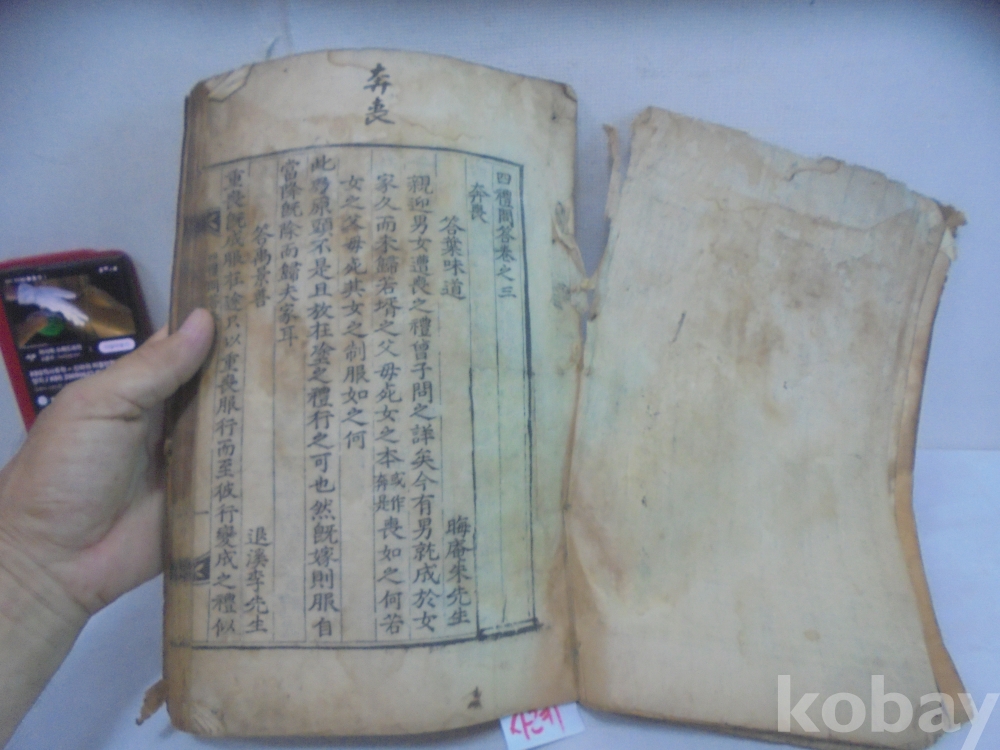 奔喪
四禮問答卷之三
奔喪
答葉味道 晦庵朱先生
親迎男女遭喪之禮曾子問之詳矣今有男就成於女
家久而未歸若壻之父母死女之本或作奔是喪如之何若
女之父母死其女之制服如之何
此乃原頭不是且放在塗之禮行之可也然旣嫁則服自
當降旣除而歸夫家耳
答禹景善 退溪李先生
重喪旣成服在途只以重喪服行而至彼行變成之禮似
kobay